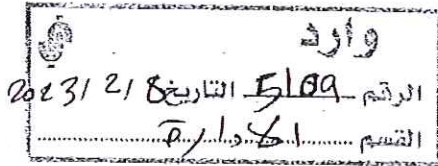 وارد في
الرقم 5109 التاريخ 2023/2/8
القسم الادارة